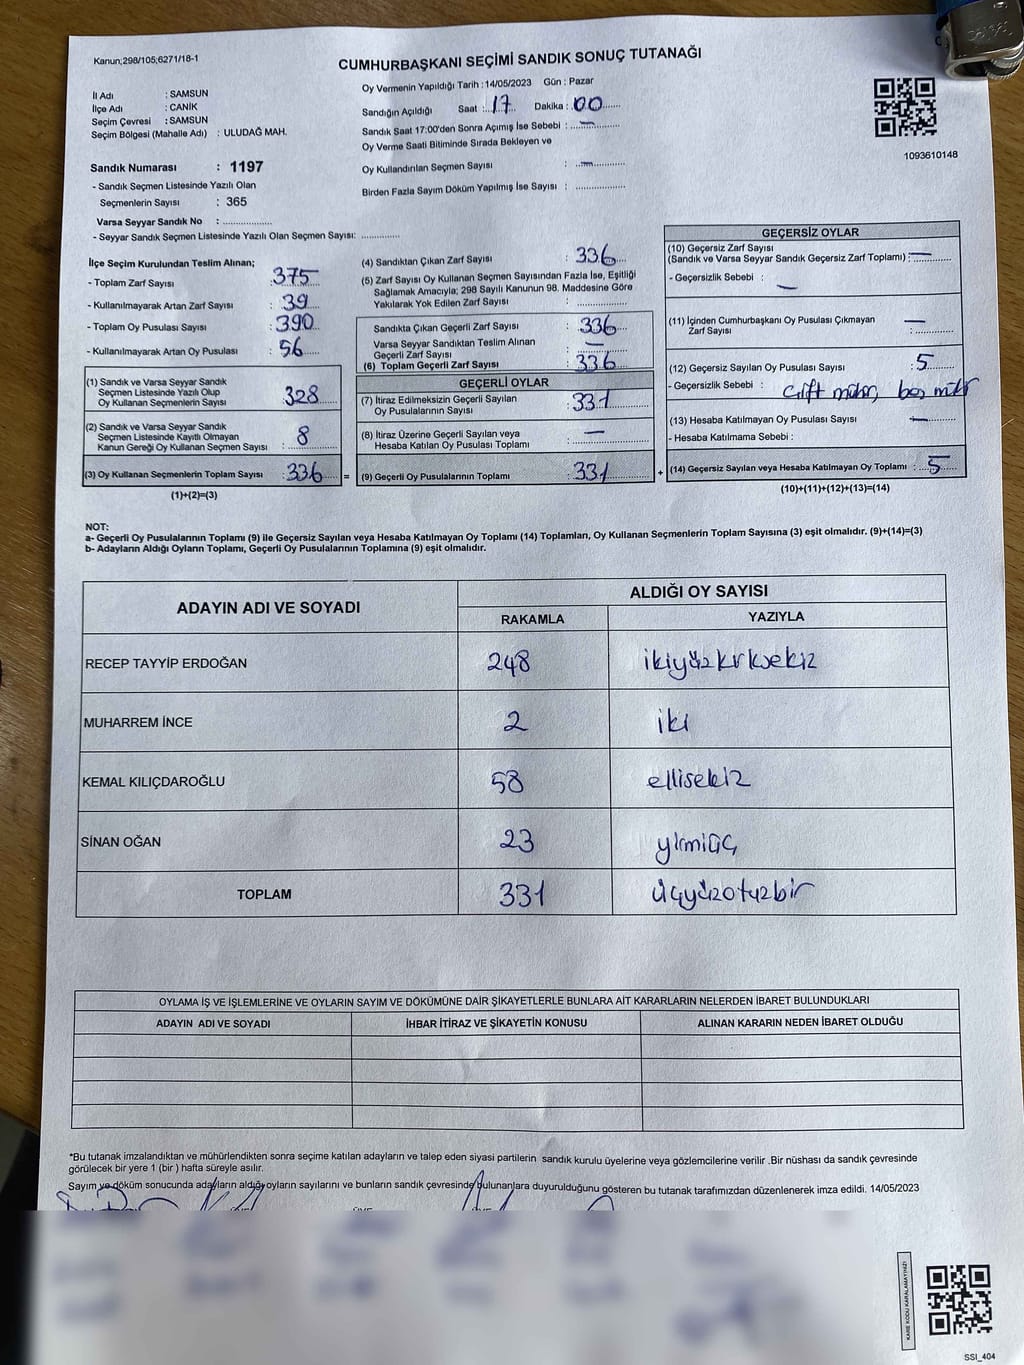 Kanun;298/105;6271/18-1
CUMHURBAŞKANI SEÇİMİ SANDIK SONUÇ TUTANAĞI
İl Adı : SAMSUN
İlçe Adı : CANİK
Seçim Çevresi : SAMSUN
Seçim Bölgesi (Mahalle Adı) : ULUDAĞ MAH.
Sandık Numarası : 1197
- Sandık Seçmen Listesinde Yazılı Olan
Seçmenlerin Sayısı : 365
Varsa Seyyar Sandık No : ..............
- Seyyar Sandık Seçmen Listesinde Yazılı Olan Seçmen Sayısı: ............
Oy Vermenin Yapıldığı Tarih :14/05/2023 Gün : Pazar
Sandığın Açıldığı Saat : 17 Dakika : 00
Sandık Saat 17:00'den Sonra Açımış İse Sebebi : —
Oy Verme Saati Bitiminde Sırada Bekleyen ve
Oy Kullandırılan Seçmen Sayısı : —
Birden Fazla Sayım Döküm Yapılmış İse Sayısı : ..............
1093610148
İlçe Seçim Kurulundan Teslim Alınan;
- Toplam Zarf Sayısı : 375
- Kullanılmayarak Artan Zarf Sayısı : 39
- Toplam Oy Pusulası Sayısı : 390
- Kullanılmayarak Artan Oy Pusulası : 56
(1) Sandık ve Varsa Seyyar Sandık
Seçmen Listesinde Yazılı Olup
Oy Kullanan Seçmenlerin Sayısı : 328
(2) Sandık ve Varsa Seyyar Sandık
Seçmen Listesinde Kayıtlı Olmayan
Kanun Gereği Oy Kullanan Seçmen Sayısı : 8
(3) Oy Kullanan Seçmenlerin Toplam Sayısı : 336 =
(1)+(2)=(3)
(4) Sandıktan Çıkan Zarf Sayısı : 336
(5) Zarf Sayısı Oy Kullanan Seçmen Sayısından Fazla İse, Eşitliği
Sağlamak Amacıyla; 298 Sayılı Kanunun 98. Maddesine Göre
Yakılarak Yok Edilen Zarf Sayısı : ..............
Sandıkta Çıkan Geçerli Zarf Sayısı : 336
Varsa Seyyar Sandıktan Teslim Alınan
Geçerli Zarf Sayısı : —
(6) Toplam Geçerli Zarf Sayısı : 336
GEÇERLİ OYLAR
(7) İtiraz Edilmeksizin Geçerli Sayılan
Oy Pusulalarının Sayısı : 331
(8) İtiraz Üzerine Geçerli Sayılan veya
Hesaba Katılan Oy Pusulası Toplamı : —
(9) Geçerli Oy Pusulalarının Toplamı : 331 +
GEÇERSİZ OYLAR
(10) Geçersiz Zarf Sayısı
(Sandık ve Varsa Seyyar Sandık Geçersiz Zarf Toplamı) : —
- Geçersizlik Sebebi : —
(11) İçinden Cumhurbaşkanı Oy Pusulası Çıkmayan
Zarf Sayısı : —
(12) Geçersiz Sayılan Oy Pusulası Sayısı : 5
- Geçersizlik Sebebi : Çift mühr, boş
(13) Hesaba Katılmayan Oy Pusulası Sayısı : —
- Hesaba Katılmama Sebebi :
(14) Geçersiz Sayılan veya Hesaba Katılmayan Oy Toplamı : 5
(10)+(11)+(12)+(13)=(14)
NOT:
a- Geçerli Oy Pusulalarının Toplamı (9) ile Geçersiz Sayılan veya Hesaba Katılmayan Oy Toplamı (14) Toplamları, Oy Kullanan Seçmenlerin Toplam Sayısına (3) eşit olmalıdır. (9)+(14)=(3)
b- Adayların Aldığı Oyların Toplamı, Geçerli Oy Pusulalarının Toplamına (9) eşit olmalıdır.
ADAYIN ADI VE SOYADI
ALDIĞI OY SAYISI
RAKAMLA YAZIYLA
RECEP TAYYİP ERDOĞAN 248 ikiyüzkırksekiz
MUHARREM İNCE 2 iki
KEMAL KILIÇDAROĞLU 58 ellisekiz
SİNAN OĞAN 23 yirmiüç
TOPLAM 331 üçyüzotuzbir
OYLAMA İŞ VE İŞLEMLERİNE VE OYLARIN SAYIM VE DÖKÜMÜNE DAİR ŞİKAYETLERLE BUNLARA AİT KARARLARIN NELERDEN İBARET BULUNDUKLARI
ADAYIN ADI VE SOYADI İHBAR İTİRAZ VE ŞİKAYETİN KONUSU ALINAN KARARIN NEDEN İBARET OLDUĞU
*Bu tutanak imzalandıktan ve mühürlendikten sonra seçime katılan adayların ve talep eden siyasi partilerin sandık kurulu üyelerine veya gözlemcilerine verilir .Bir nüshası da sandık çevresinde
görülecek bir yere 1 (bir ) hafta süreyle asılır.
Sayım ve döküm sonucunda adayların aldığı oyların sayılarını ve bunların sandık çevresinde bulunanlara duyurulduğunu gösteren bu tutanak tarafımızdan düzenlenerek imza edildi. 14/05/2023
KARE KODU KARALAMAYINIZ!
SSI_404